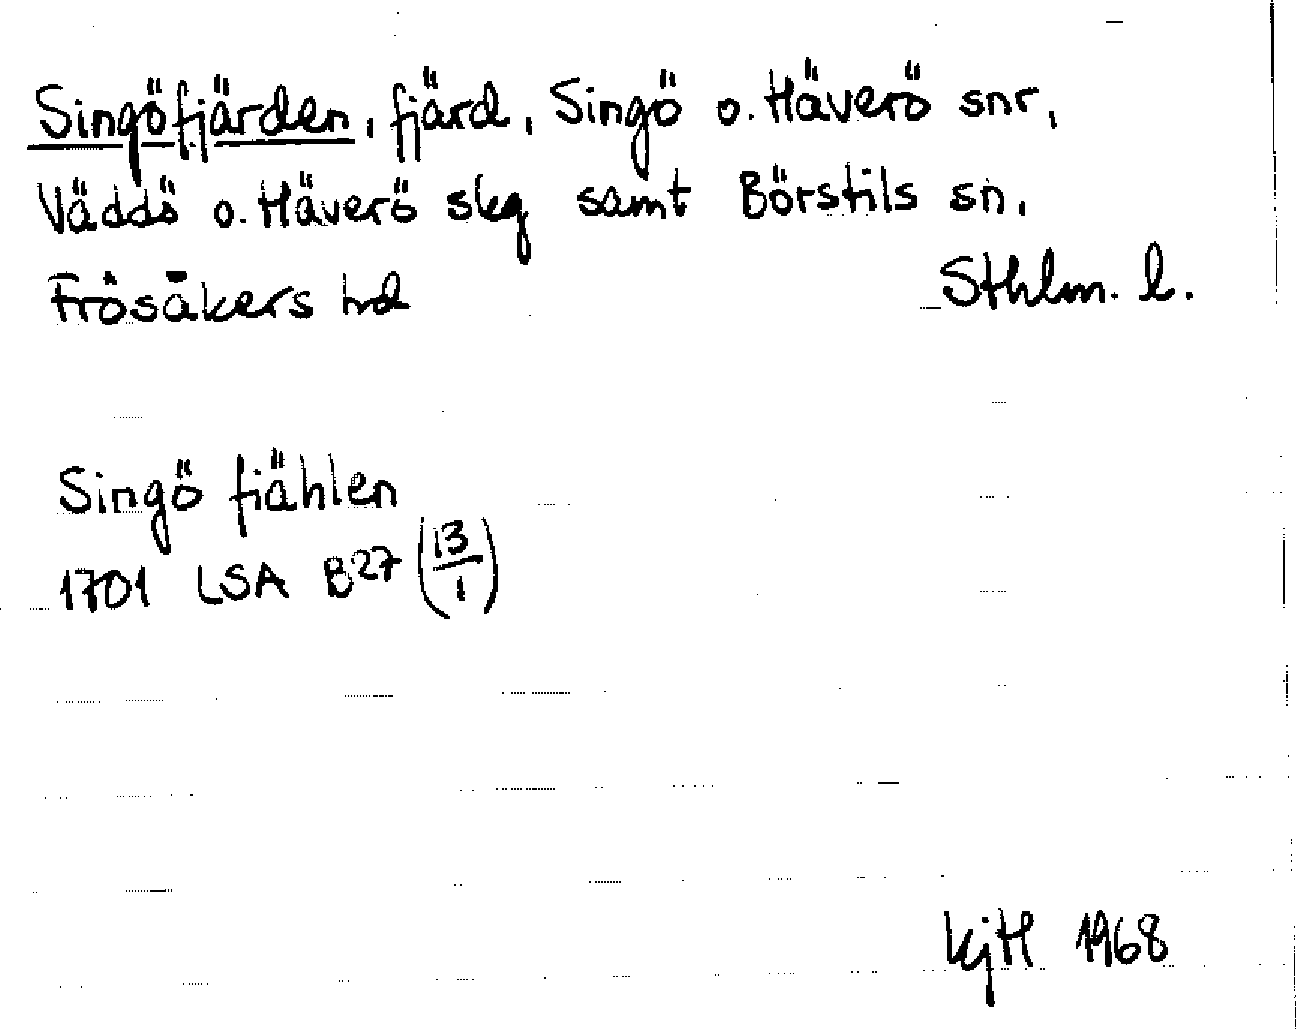 Singöfjärden, fjärd, Singö o. Häverö snr,
Väddö o. Häverö skg samt Börstils sn,
Frösåkers hd
Sthlm. l.
Singö fiählen
1701 LSA B27 (13/1)
KjH 1968